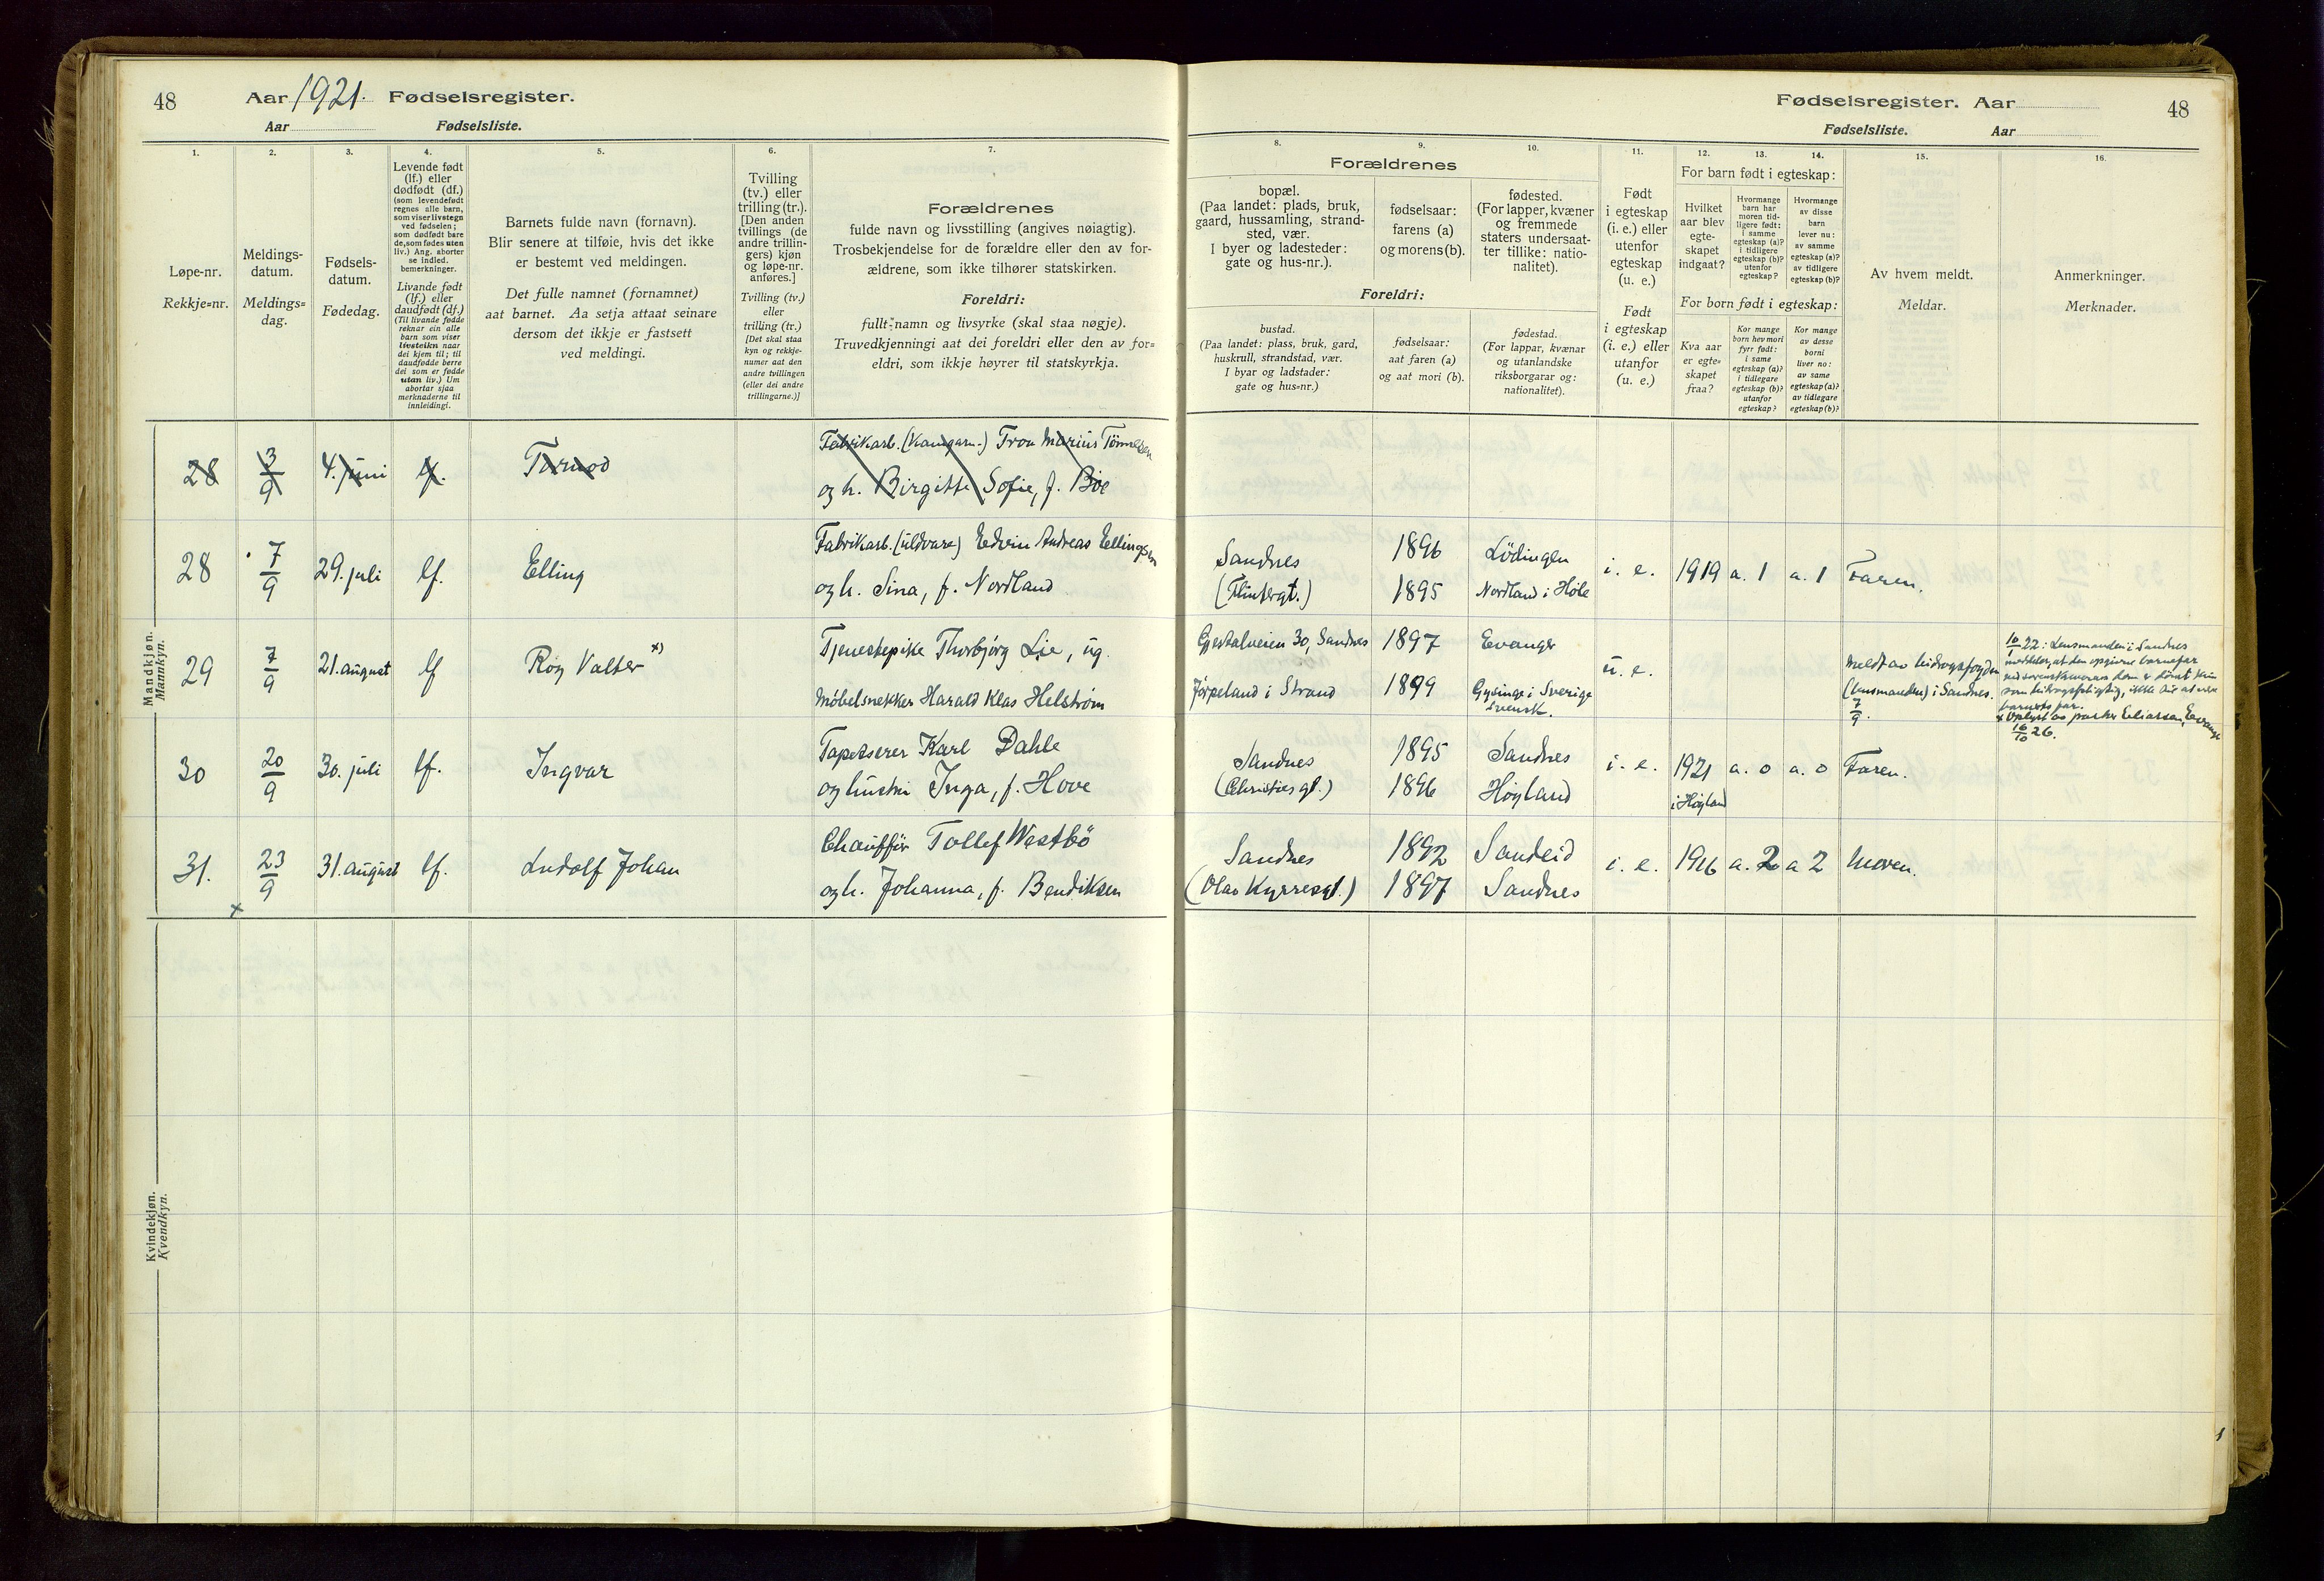 48 Aar 1921. Fødselsregister.
Aar Fødselsliste.
Fødselsregister. Aar 48
Fødselsliste. Aar
1.
Løpe-nr.
Rekkje=nr.
2.
Meldings-
datum.
Meldings=
dag.
3.
Fødsels-
datum.
Fødedag.
4.
Levende født
(lf.) eller
dødfødt (df.)
(som levendefødt
regnes alle barn,
som viser livstegn
ved fødselen;
som dødfødt bare
de, som fødes uten
liv.) Ang. aborter
se indled.
bemerkninger.
Livande født
(lf.) eller
daudfødt (df.)
(Til livande fødde
reknar ein alle
barn som viser
livsteikn naar
dei kjem til; til
daudfødde berre
dei som er fødde
utan liv.) Um
abortar sjaa
merknaderne til
innleidingi.
5.
Barnets fulde navn (fornavn).
Blir senere at tilføie, hvis det ikke
er bestemt ved meldingen.
Det fulle namnet (fornamnet)
aat barnet. Aa setja attaat seinare
dersom det ikkje er fastsett
ved meldingi.
6.
Tvilling
(tv.) eller
trilling (tr.).
[Den anden
tvillings (de
andre trillin-
gers) kjøn
og løpe-nr.
anføres.]
Tvilling (tv.)
eller
trilling (tr.)
[Det skal staa
kyn og rekkje-
numer aat den
andre tvillingen
(eller dei andre
trillingarne.)]
7.
Forældrenes
fulde navn og livsstilling (angives nøiagtig).
Trosbekjendelse for de forældre eller den av for-
ældrene, som ikke tilhører statskirken.
Foreldri:
fullt namn og livsyrke (skal staa nøgje).
Truvedkjenningi aat dei foreldri eller den av for=
eldri, som ikkje høyrer til statskyrkja.
Forældrenes
8.
bopæl.
(Paa landet: plads, bruk,
gaard, hussamling, strand-
sted, vær.
I byer og ladesteder:
gate og hus-nr.).
Foreldri:
bustad.
(Paa landet: plass, bruk, gard,
huskrull, strandstad, vær.
I byar og ladstader:
gate og hus=nr.)
9.
fødselsaar:
farens (a)
og morens (b).
fødselsaar:
aat faren (a)
og aat mori (b).
10.
fødested.
(For lapper, kvæner
og fremmede
staters undersaat-
ter tillike: natio-
nalitet).
fødestad.
(For lappar, kvænar
og utanlandske
riksborgarar og:
nationalitet).
11.
Født
i egteskap
(i. e.) eller
utenfor
egteskap
(u. e.)
Født
i egteskap
(i. e.) eller
utanfor
(u. e.)
12. 13. 14.
For barn født i egteskap:
Hvilket
aar blev
egte-
skapet
indgaat?
Hvormange
barn har
moren tid-
ligere født:
i samme
egteskap (a)?
i tidligere
egteskap (b)?
utenfor
egteskap?
Hvormange
av disse
barn
lever nu:
av samme
egteskap (a)?
av tidligere
egteskap (b)?
For born født i egteskap:
Kva aar
er egte=
skapet
fraa?
Kor mange
born hev mori
fyrr født:
i same
egteskap (a)?
i tidlegare
egteskap (b)?
utanfor
egteskap?
Kor mange
av desse
borni
liver no:
av same
egteskap (a)?
av tidlegare
egteskap (b)?
15.
Av hvem meldt.
Meldar.
16.
Anmerkninger.
Merknader.
Mandkjøn.
Mannkyn.
28 3/9 4. juni lf. Tormod Fabrikarb. (Kamgarn.) Tron Marius Tønnesen
og h. Birgitte Sofie, f. Boe
28 7/9 29. juli lf. Elling Fabrikarb. (uldvare) Edvin Andreas Ellingsen
og h. Sina, f. Nordland
Sandnes 1896 Lödingen i. e. 1919 a. 1 a. 1 Faren.
(Flintergt.) 1895 Nordland i Høle
29 7/9 21. august lf Roy Valter x) Tjenestepike Thorbjørg Lie, ug.
Møbelsnekker Harald Klas Helstrøm
Gjestalveien 30, Sandnes 1897 Evanger u. e.
Jørpeland i Strand 1899 Gysinge i Sverige
svensk.
Meldt av bidragsfogden
(lensmanden) i Sandnes.
7/9.
10/1 22: Lensmanden i Sandnes
meddeler, at den opgivne barnefar
barnets far.
x Oplyst av pastor Eliassen, Evanger
16/10 26.
30 20/9 30. juli lf. Ingvar Tapetserer Karl Dahle
og hustru Inga, f. Hove
Sandnes 1895 Sandnes i. e. 1921 a. 0 a. 0 Faren.
(Christiesgt.) 1896 Høyland i Høyland
31. 23/9 31. august lf. Ludolf Johan Chauffør Tollef Westbö
og h. Johanna, f. Bendiksen
Sandnes 1892 Sandeid i. e. 1916 a. 2 a 2 Moren.
(Olav Kyrresgt.) 1897 Sandnes
x
Kvindekjøn.
Kvendkyn.